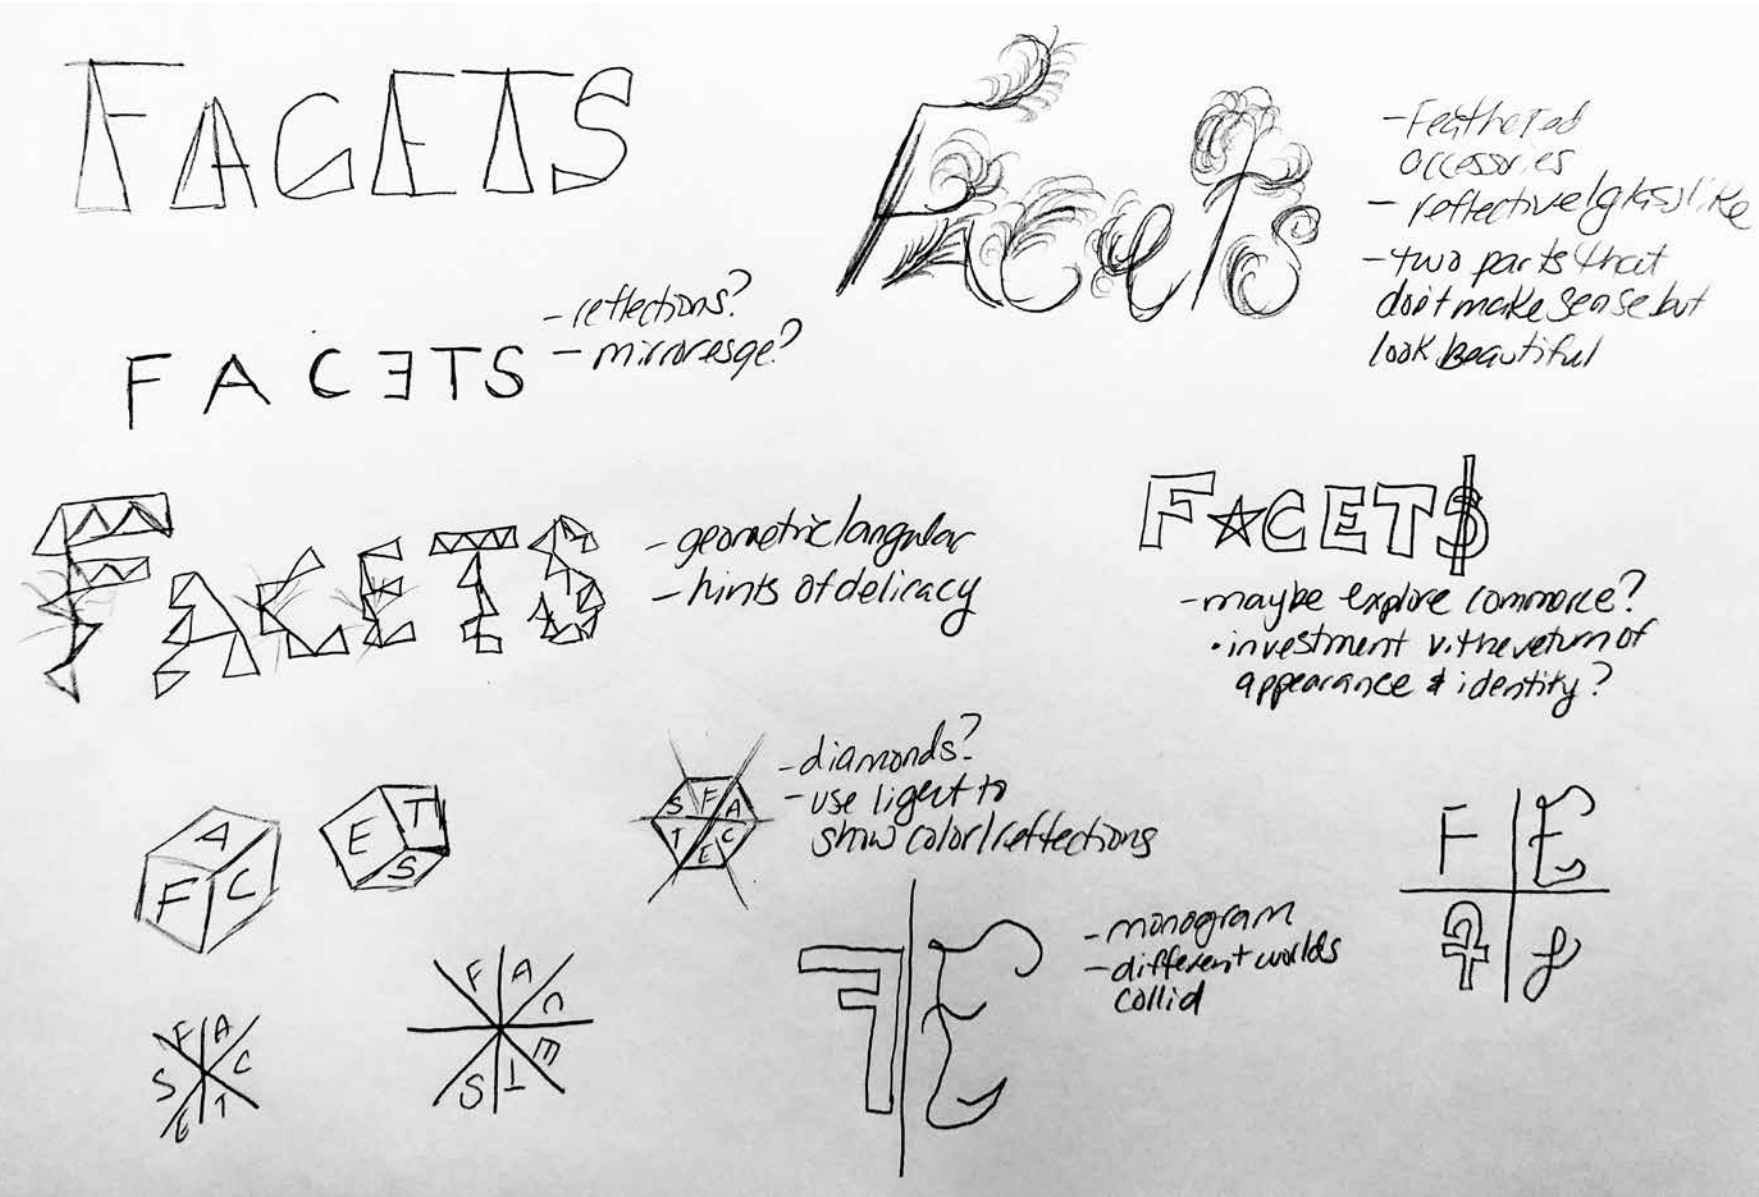 FACETS
Facets
-Feathered
accessories
- reflective/glasslike
-two parts that
don't make sense but
look beautiful
-reflections?
-mirroresqe?
FACƎTS
FACETS
-geometric/angular
-hints of delicacy
F☆CET$
-maybe explore commerce?
•investment v. the return of
appearance & identity?
-diamonds?
-use light to
show color/reflections
A
F C
E T
S
S F A
T E C
F E
F
-monogram
-different worlds
collid
F A
S C
E T
F A
C
E
S T
F E